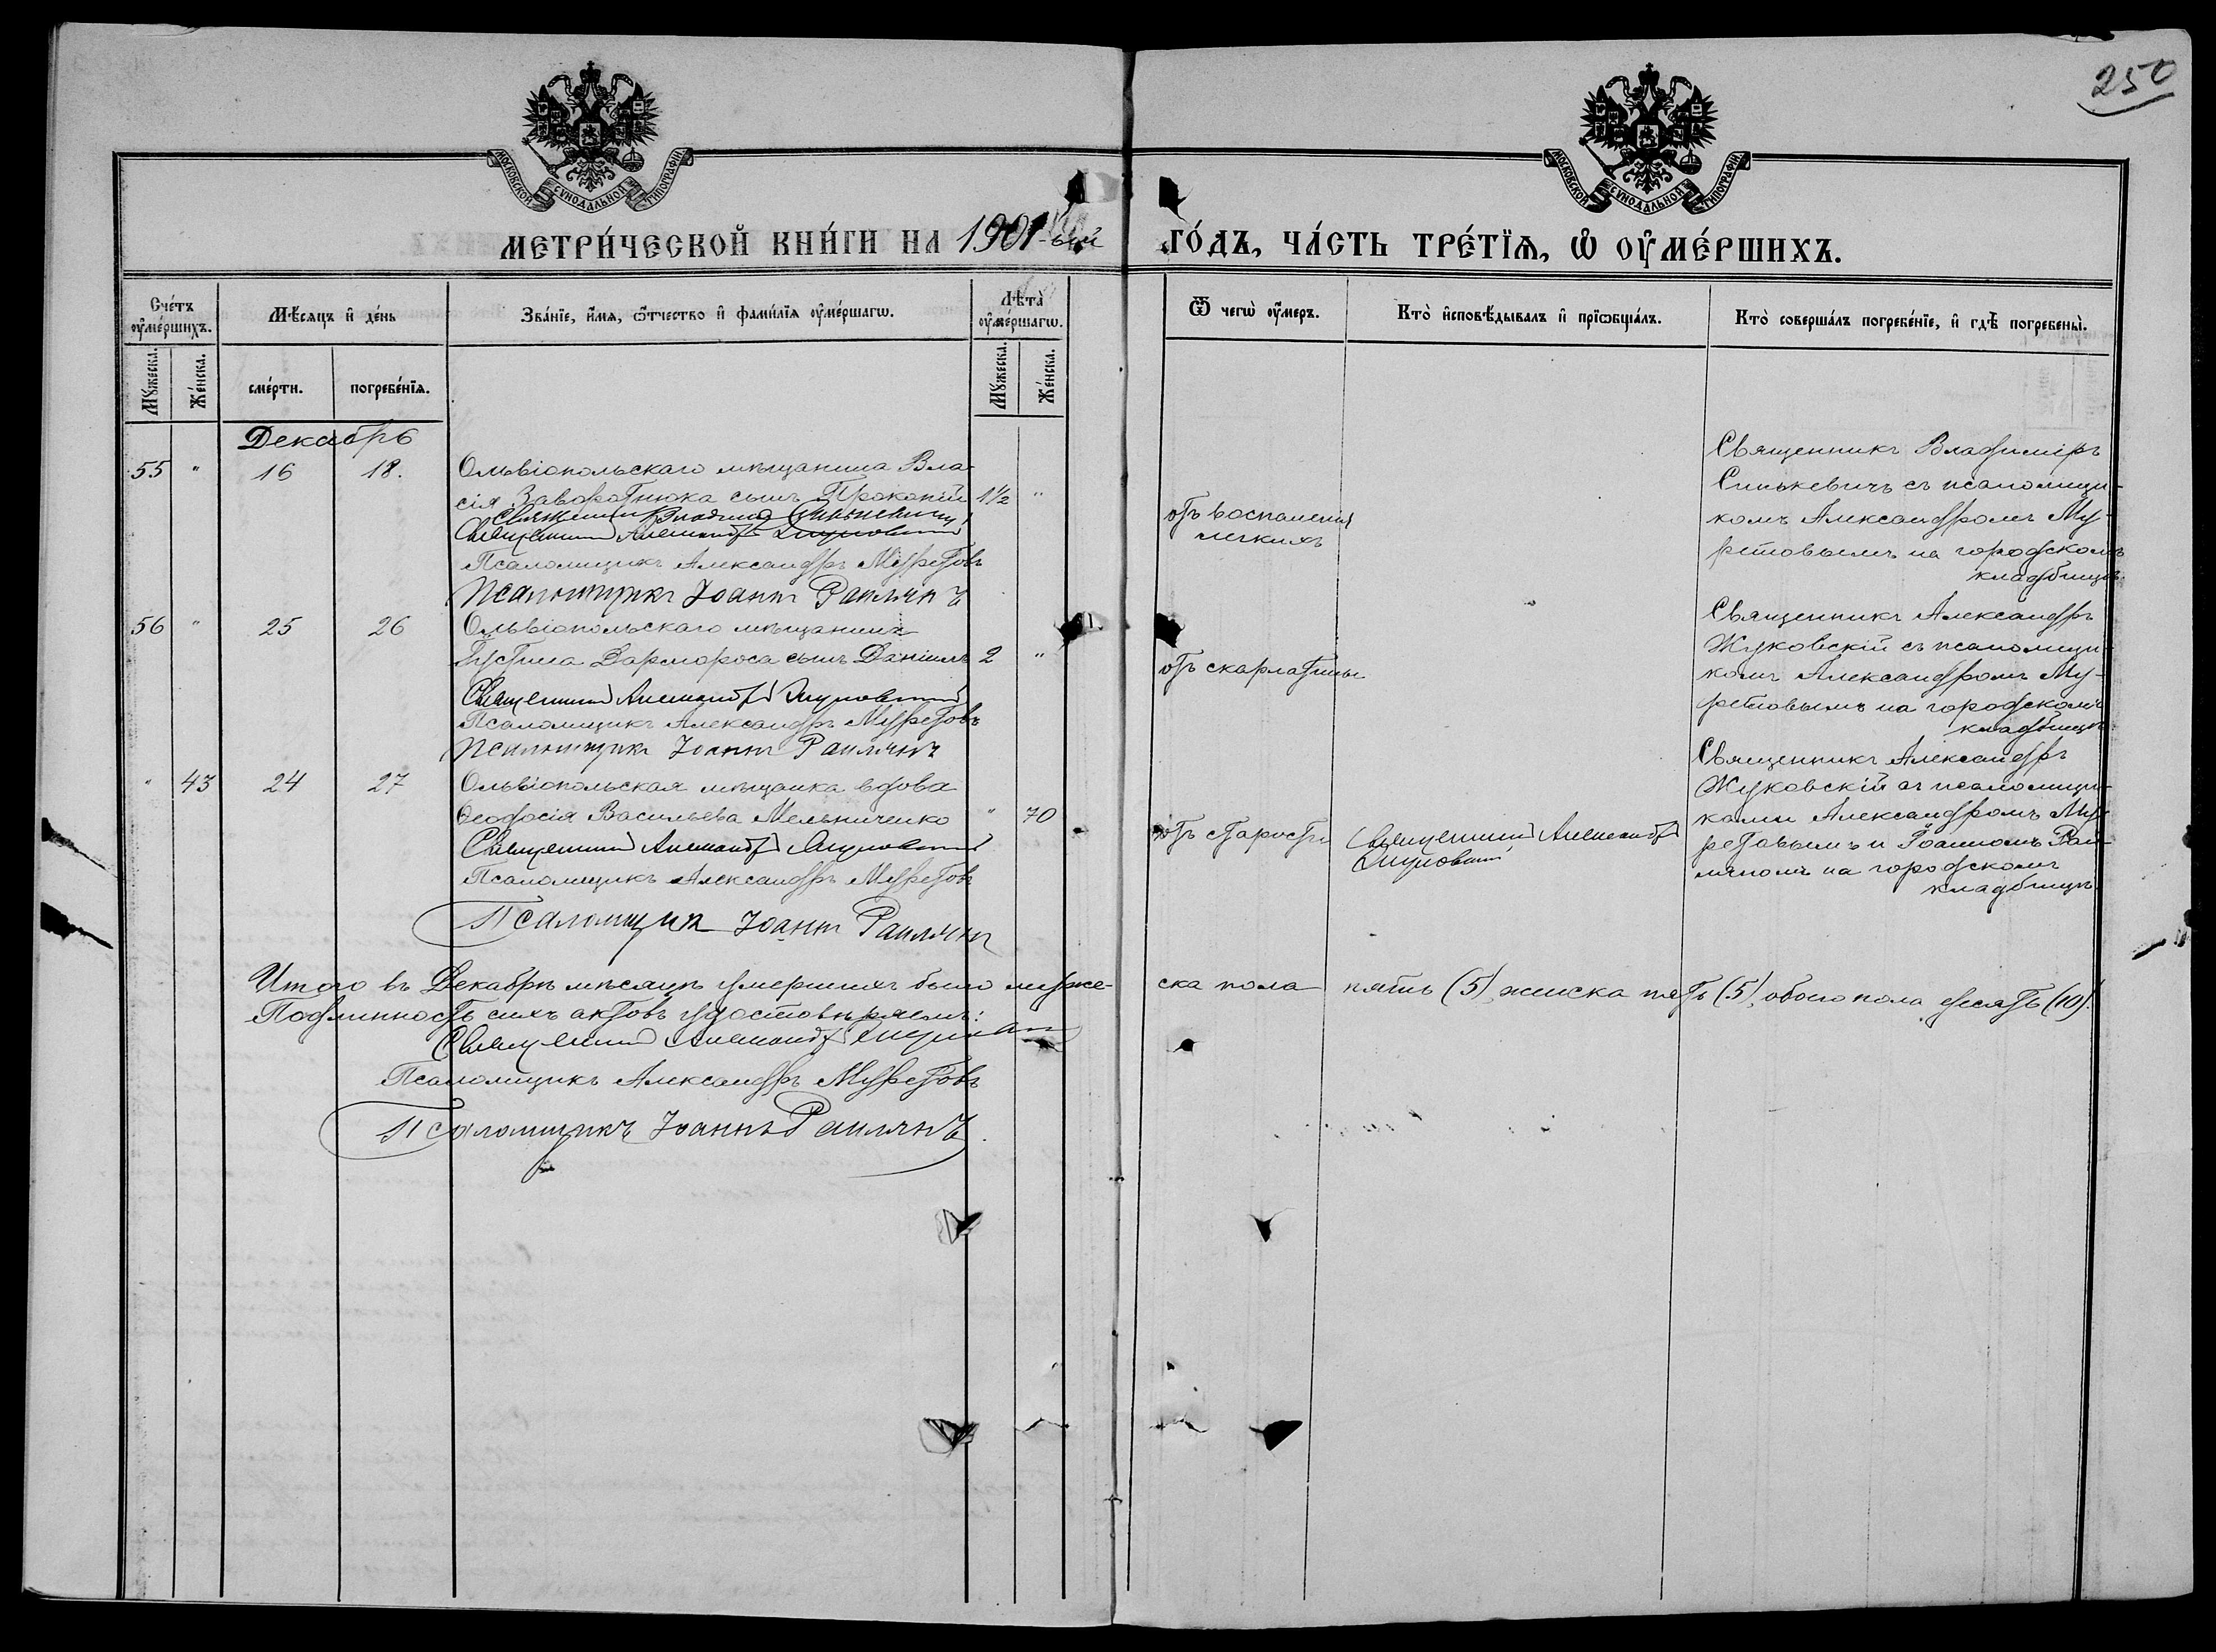 250
МОСКОВСКОЙ СѴНОДАЛЬНОЙ ТИПОГРАФІИ.
МОСКОВСКОЙ СѴНОДАЛЬНОЙ ТИПОГРАФІИ.
МЕТРИ́ЧЕСКОЙ КНИ́ГИ НА 1901-ый ГО́ДЪ, ЧА́СТЬ ТРЕ́ТЇѦ, Ѡ҆ ОУ҆МЕ́РШИХЪ.
Сче́тъ оу҆ме́ршихъ.
Мꙋ́жеска.
Же́нска.
Мѣ́сяцъ и҆ де́нь
сме́рти.
погребе́нїѧ.
Зва́нїе, и҆́мѧ, ѻ҆́тчество и҆ фами́лїѧ оу҆ме́ршагѡ.
Лѣта̀ оу҆ме́ршагѡ.
Мꙋ́жеска.
Же́нска.
Ѿ чегѡ̀ оу҆́меръ.
Кто̀ и҆сповѣ́дывалъ и҆ прїѡбща́лъ.
Кто̀ соверша́лъ погребе́нїе, и҆ гдѣ̀ погребены̀.
Декабрь
55 " 16 18.
Ольвіопольскаго мѣщанина Вла-
сія Заворотнюка сынъ Прокопій 1½ "
Священникъ Владиміръ Синькевичъ
Священникъ Александръ Жуковскій
Псаломщикъ Александръ Муретовъ
Псаломщикъ Іоаннъ Раилянъ
отъ воспаленія
легкихъ
Священникъ Владиміръ
Синькевичъ съ псаломщи-
комъ Александромъ Му-
ретовымъ на городскомъ
кладбищѣ.
56 " 25 26
Ольвіопольскаго мѣщанина
Іустина Дармороса сынъ Даніилъ 2 "
Священникъ Александръ Жуковскій
Псаломщикъ Александръ Муретовъ
Псаломщикъ Іоаннъ Раилянъ
отъ скарлатины
Священникъ Александръ
Жуковскій съ псаломщи-
комъ Александромъ Му-
ретовымъ на городскомъ
кладбищѣ.
" 43 24 27
Ольвіопольская мѣщанка вдова
Ѳеодосія Васильева Мельниченко " 70
Священникъ Александръ Жуковскій
Псаломщикъ Александръ Муретовъ
Псаломщикъ Іоаннъ Раилянъ
отъ старости
Священникъ Александръ
Жуковскій
Священникъ Александръ
Жуковскій съ псаломщи-
ками Александромъ Му-
ретовымъ и Іоанномъ Раи-
ляномъ на городскомъ
кладбищѣ.
Итого въ Декабрѣ мѣсяцѣ умершихъ было муже-ска пола пять (5), женска пять (5), обоего пола десять (10).
Подлинность сихъ актовъ удостовѣряемъ:
Священникъ Александръ Жуковскій
Псаломщикъ Александръ Муретовъ
Псаломщикъ Іоаннъ Раилянъ.